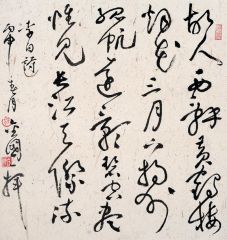 故人西辭黃鶴樓
烟花三月下揚州
孤帆遠影碧空盡
惟見長江天際流
李白詩
丙申